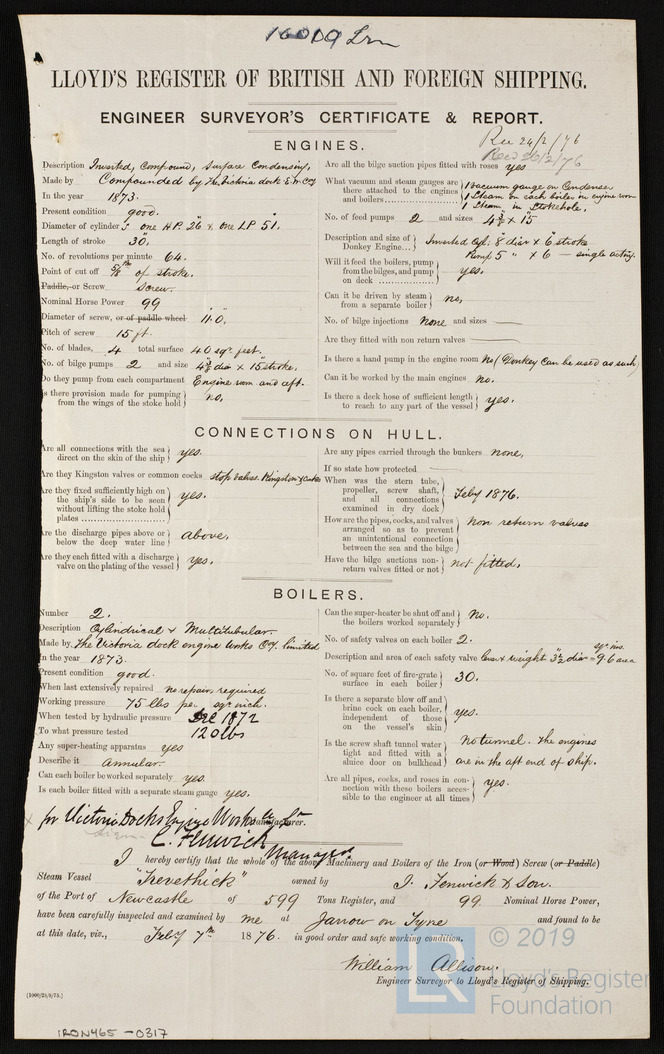 16009 Lrn
LLOYD'S REGISTER OF BRITISH AND FOREIGN SHIPPING.
ENGINEER SURVEYOR'S CERTIFICATE & REPORT.
Rec 24/2/76
Rec'd 26/2/76
ENGINES.
Description Inverted, Compound, Surface Condensing,
Made by Compounded by The Victoria dock E. W. Coy
In the year 1873.
Present condition good.
Diameter of cylinders one HP. 26" & one LP 51."
Length of stroke 30."
No. of revolutions per minute 64.
Point of cut off 5/8ths of stroke.
Paddle, or Screw Screw.
Nominal Horse Power 99
Diameter of screw, or of paddle wheel 11'.0."
Pitch of screw 15 ft.
No. of blades, 4 total surface 40 sqr feet.
No. of bilge pumps 2 and size 4 3/4 dia x 15" stroke.
Do they pump from each compartment Engine room and aft.
Is there provision made for pumping from the wings of the stoke hold no.
Are all the bilge suction pipes fitted with roses yes
What vacuum and steam gauges are there attached to the engines and boilers
1 vacuum gauge on Condenser
1 Steam on each boiler in engine room
1 Steam in Stokehole.
No. of feed pumps 2 and sizes 4 3/4 x 15"
Description and size of Donkey Engine Inverted Cyl. 8" dia x 6" stroke
Pump 5 " x 6 — single acting.
Will it feed the boilers, pump from the bilges, and pump on deck yes.
Can it be driven by steam from a separate boiler no,
No. of bilge injections None and sizes
Are they fitted with non return valves
Is there a hand pump in the engine room No (Donkey can be used as such)
Can it be worked by the main engines no.
Is there a deck hose of sufficient length to reach to any part of the vessel yes.
CONNECTIONS ON HULL.
Are all connections with the sea direct on the skin of the ship yes.
Are they Kingston valves or common cocks stop valves Kingston & Cocks
Are they fixed sufficiently high on the ship's side to be seen without lifting the stoke hold plates yes.
Are the discharge pipes above or below the deep water line above.
Are they each fitted with a discharge valve on the plating of the vessel yes.
Are any pipes carried through the bunkers none,
If so state how protected
When was the stern tube, propeller, screw shaft, and all connections examined in dry dock Feby 1876.
How are the pipes, cocks, and valves arranged so as to prevent an unintentional connection between the sea and the bilge Non return valves
Have the bilge suctions non-return valves fitted or not not fitted.
BOILERS.
Number 2.
Description Cylindrical & Multitubular.
Made by The Victoria dock engine works Coy. limited
In the year 1873.
Present condition good.
When last extensively repaired no repairs required
Working pressure 75 lbs per sqr inch.
When tested by hydraulic pressure Dec 1872
To what pressure tested 120 lbs
Any super-heating apparatus yes
Describe it annular.
Can each boiler be worked separately yes.
Is each boiler fitted with a separate steam gauge yes.
Can the super-heater be shut off and the boilers worked separately No.
No. of safety valves on each boiler 2.
Description and area of each safety valve lever & weight 3 1/2 dia = 9.6 area sqr ins.
No. of square feet of fire-grate surface in each boiler 30.
Is there a separate blow off and brine cock on each boiler, independent of those on the vessel's skin yes.
Is the screw shaft tunnel water tight and fitted with a sluice door on bulkhead No tunnel. The engines are in the aft end of ship.
Are all pipes, cocks, and roses in connection with these boilers accessible to the engineer at all times yes.
for Victoria Docks Engine Works Coy Ld Manufacturer.
C. Fenwick
Manager.
I hereby certify that the whole of the above Machinery and Boilers of the Iron (or Wood) Screw (or Paddle)
Steam Vessel "Trevethick" owned by J. Fenwick & Son.
of the Port of Newcastle of 599 Tons Register, and 99 Nominal Horse Power,
have been carefully inspected and examined by me at Jarrow on Tyne and found to be
at this date, viz., Feby 7th 1876. in good order and safe working condition.
William Allison.
Engineer Surveyor to Lloyd's Register of Shipping.
[1000/23/9/75.]
IRON465-0317
LR
© 2019
Lloyd's Register
Foundation